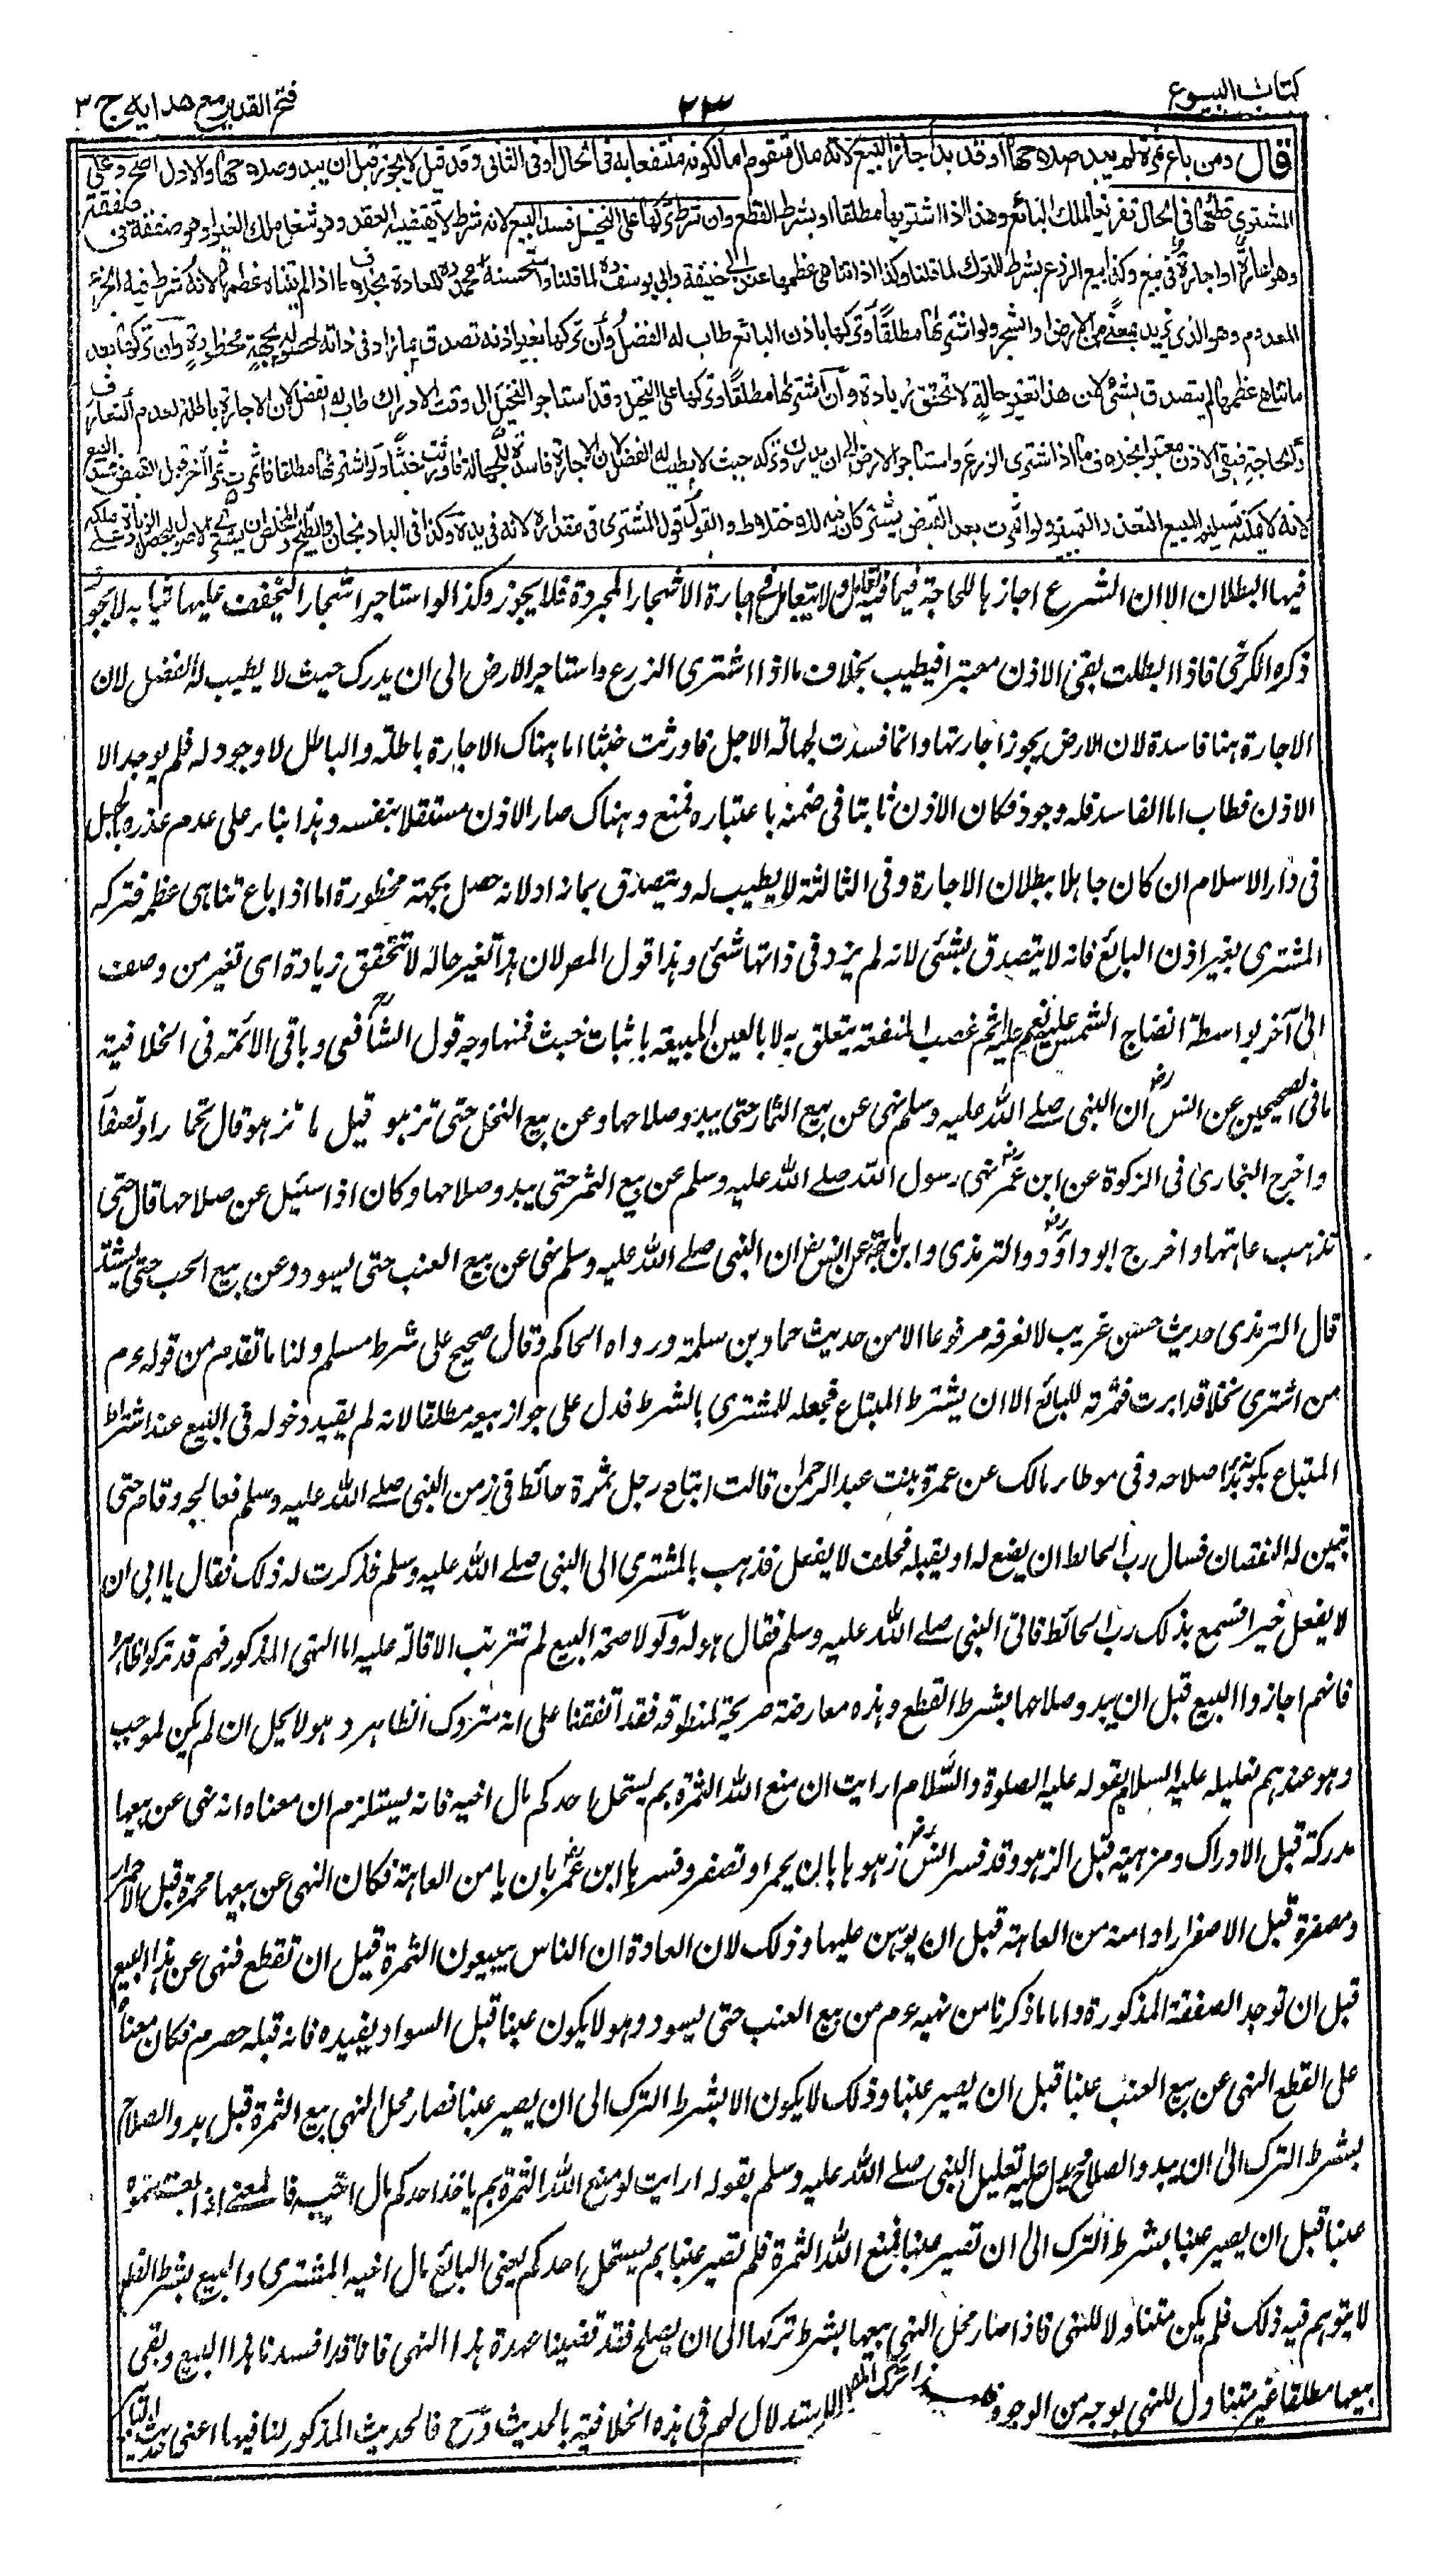 كتاب البيوع
٢٢٣
فتح القدير مع هدايه ج ٣
قال ومن باع ثمرة لم يبد صلاحها او قد بدا جاز البيع لانه مال متقوم اما لكونه منتفعا به فى الحال او فى الثانى وقد قيل لا يجوز قبل ان يبدو صلاحها والاول اصح وعلى
المشترى قطعها فى الحال تفريغا لملك البائع وهذا اذا اشتريها مطلقا او بشرط القطع وان شرط تركها على النخيل فسد البيع لانه شرط لا يقتضيه العقد وهو شغل ملك الغير او هو صفقة فى صفقة
وهو اعارة او اجارة فى بيع وكذا بيع الزرع بشرط الترك لما قلنا وكذا اذا تناهى عظمها عند ابى حنيفة وابى يوسف ره لما قلنا واستحسنه محمد ره للعادة بخلاف ما اذا لم يتناه عظمها لانه شرط فيه الجزء
المعدوم وهو الذى يزيد بمعنى من الارض او الشجر ولو اشتراها مطلقا وتركها باذن البائع طاب له الفضل وان تركها بغير اذنه تصدق بما زاد فى ذاته لحصوله بجهة محظورة وان تركها بعد
ما تناهى عظمها لم يتصدق بشئ لان هذا تغير حالة لا تحقق زيادة وان اشتراها مطلقا وتركها على النخيل وقد استاجر النخيل الى وقت الادراك طاب له الفضل لان الاجارة باطلة لعدم التعارف
والحاجة فبقى الاذن معتبرا بخلاف ما اذا اشترى الزرع واستاجر الارض الى ان يدرك وتركه حيث لا يطيب له الفضل لان الاجارة فاسدة للجهالة فاورثت خبثا ولو اشتراها مطلقا فاثمرت ثمرا آخر قبل القبض فسد البيع
لانه لا يمكنه تسليم المبيع لتعذر التميز ولو اثمرت بعد القبض يشتركان فيه للاختلاط والقول قول المشترى فى مقداره لانه فى يده وكذا فى الباذنجان والبطيخ والمخلص ان يشترى الاصول لتحصل الزيادة على ملكه
فيها البطلان الا ان الشرع اجازها للحاجة فيما فيه تعامل ولا تعامل فى اجارة الاشجار المجردة فلا يجوز وكذا لو استاجر اشجارا ليجفف عليها ثيابه لا يجوز
ذكره الكرخى فاذا بطلت بقى الاذن معتبرا فيطيب بخلاف ما اذا اشترى الزرع واستاجر الارض الى ان يدرك حيث لا يطيب له الفضل لان
الاجارة هنا فاسدة لان الارض يجوز اجارتها وانما فسدت لجهالة الاجل فاورثت خبثا اما هناك الاجارة باطلة والباطل لا وجود له فلم يوجد الا
الاذن فطاب اما الفاسد فله وجود فكان الاذن ثابتا فى ضمنه باعتباره فمنع وهناك صار الاذن مستقلا بنفسه وهذا بناء على عدم عذره بالجهل
فى دار الاسلام ان كان جاهلا ببطلان الاجارة وفى الثالثة لا يطيب له ويتصدق بما زاد لانه حصل بجهة محظورة اما اذا باع تناهى عظمه فتركه
المشترى بغير اذن البائع فانه لا يتصدق بشئى لانه لم يزد فى ذاتها شئى وهذا قول المصـ لان هذا تغير حالة لا تحقق زيادة اى تغير من وصف
الى آخر بواسطة انضاج الشمس عليه نعم عليه اثم غصب المنفعة يتعلق به لا بالعين المبيعة باثبات خبث فمنها وجه قول الشافعى رح وباقى الائمة فى الخلافية
ما فى الصحيحين عن انس رض ان النبى صلے الله عليه وسلم نهى عن بيع الثمار حتى يبدو صلاحها وعن بيع النخل حتى تزهو قيل ما تزهو قال تحمار او تصفار
واخرج البخارى فى الزكوة عن ابن عمر رض نهى رسول الله صلے الله عليه وسلم عن بيع الثمر حتى يبدو صلاحها وكان اذا سئيل عن صلاحها قال حتى
تذهب عاهتها واخرج ابو داؤد والترمذى وابن ماجة عن انس رض ان النبى صلے الله عليه وسلم نهى عن بيع العنب حتى يسود وعن بيع الحب حتى يشتد
قال الترمذى حديث حسن غريب لا نعرفه مرفوعا الا من حديث حماد بن سلمة ورواه الحاكم وقال صحيح على شرط مسلم ولنا ما تقدم من قوله ءم
من اشترى نخلا قد ابرت فثمرته للبائع الا ان يشترط المبتاع فجعله للمشترى بالشرط فدل على جواز بيعه مطلقا لانه لم يقيد دخوله فى البيع عند اشتراط
المبتاع بكونه بدا صلاحه وفى موطا مالك عن عمرة بنت عبد الرحمن قالت ابتاع رجل ثمرة حائط فى زمن النبى صلے الله عليه وسلم فعالجه وقام حتى
تبين له النقصان فسال رب الحائط ان يضع له او يقيله فحلف لا يفعل فذهب بالمشترى الى النبى صلے الله عليه وسلم فذكرت له ذلك فقال يا ابى ان
لا يفعل خيرا فسمع بذلك رب الحائط فاتى النبى صلے الله عليه وسلم فقال هو له ولولا صحة البيع لم تترتب الاقالة عليه اما النهى المذكور فهم قد تركوا ظاهره
فانهم اجازوا البيع قبل ان يبدو صلاحها بشرط القطع وهذه معارضة صريحة لمنطوقه فقد اتفقنا على انه متروك الظاهر وهو لا يحل ان لم يكن لموجب
وهو عندهم تعليله عليه السلام بقوله عليه الصلوة والسلام ارايت ان منع الله الثمرة بم يستحل احدكم مال اخيه فانه يستلزم ان معناه انه نهى عن بيعها
مدركة قبل الادراك ومزهية قبل الزهو وقد فسر انس رض زهوها بان يحمر او تصفر وفسرها ابن عمر رض بان يامن العاهة فكان النهى عن بيعها محمرة قبل الاحمرار
ومصفرة قبل الاصفرار او امنة من العاهة قبل ان يومن عليها وذلك لان العادة ان الناس يبيعون الثمرة قبل ان تقطع فنهى عن هذا البيع
قبل ان توجد الصفقة المذكورة واما ما ذكرنا من نهيه ءم من بيع العنب حتى يسود وهو لا يكون عنبا قبل السواد يفيده فانه قبله حصرم فكان معناه
على القطع النهى عن بيع العنب عنبا قبل ان يصير عنبا وذلك لا يكون الا بشرط الترك الى ان يصير عنبا فصار محل النهى بيع الثمرة قبل بدو الصلاح
بشرط الترك الى ان يبدو الصلاح ويدل عليه تعليل النبى صلے الله عليه وسلم بقوله ارايت لو منع الله الثمرة بم ياخذ احدكم مال اخيه فالمعنى اذا بعتموه
عنبا قبل ان يصير عنبا بشرط الترك الى ان تصير عنبا فمنع الله الثمرة فلم تصير عنبا بم يستحل احدكم يعنى البائع مال اخيه المشترى والبيع بشرط القطع
لا يتوهم فيه ذلك فلم يكن متناولا للنهى فاذا صار محل النهى بيعها بشرط تركها الى ان يصلح فقد قضينا عهدة هذا النهى فانا قد افسدنا هذا البيع وبقى
بيعها مطلقا غير متناول للنهى بوجه من الوجوه الاستدلال لهم فى هذه الخلافية بالحديث وح فالحديث المذكور لنا فيها اعنى حديث